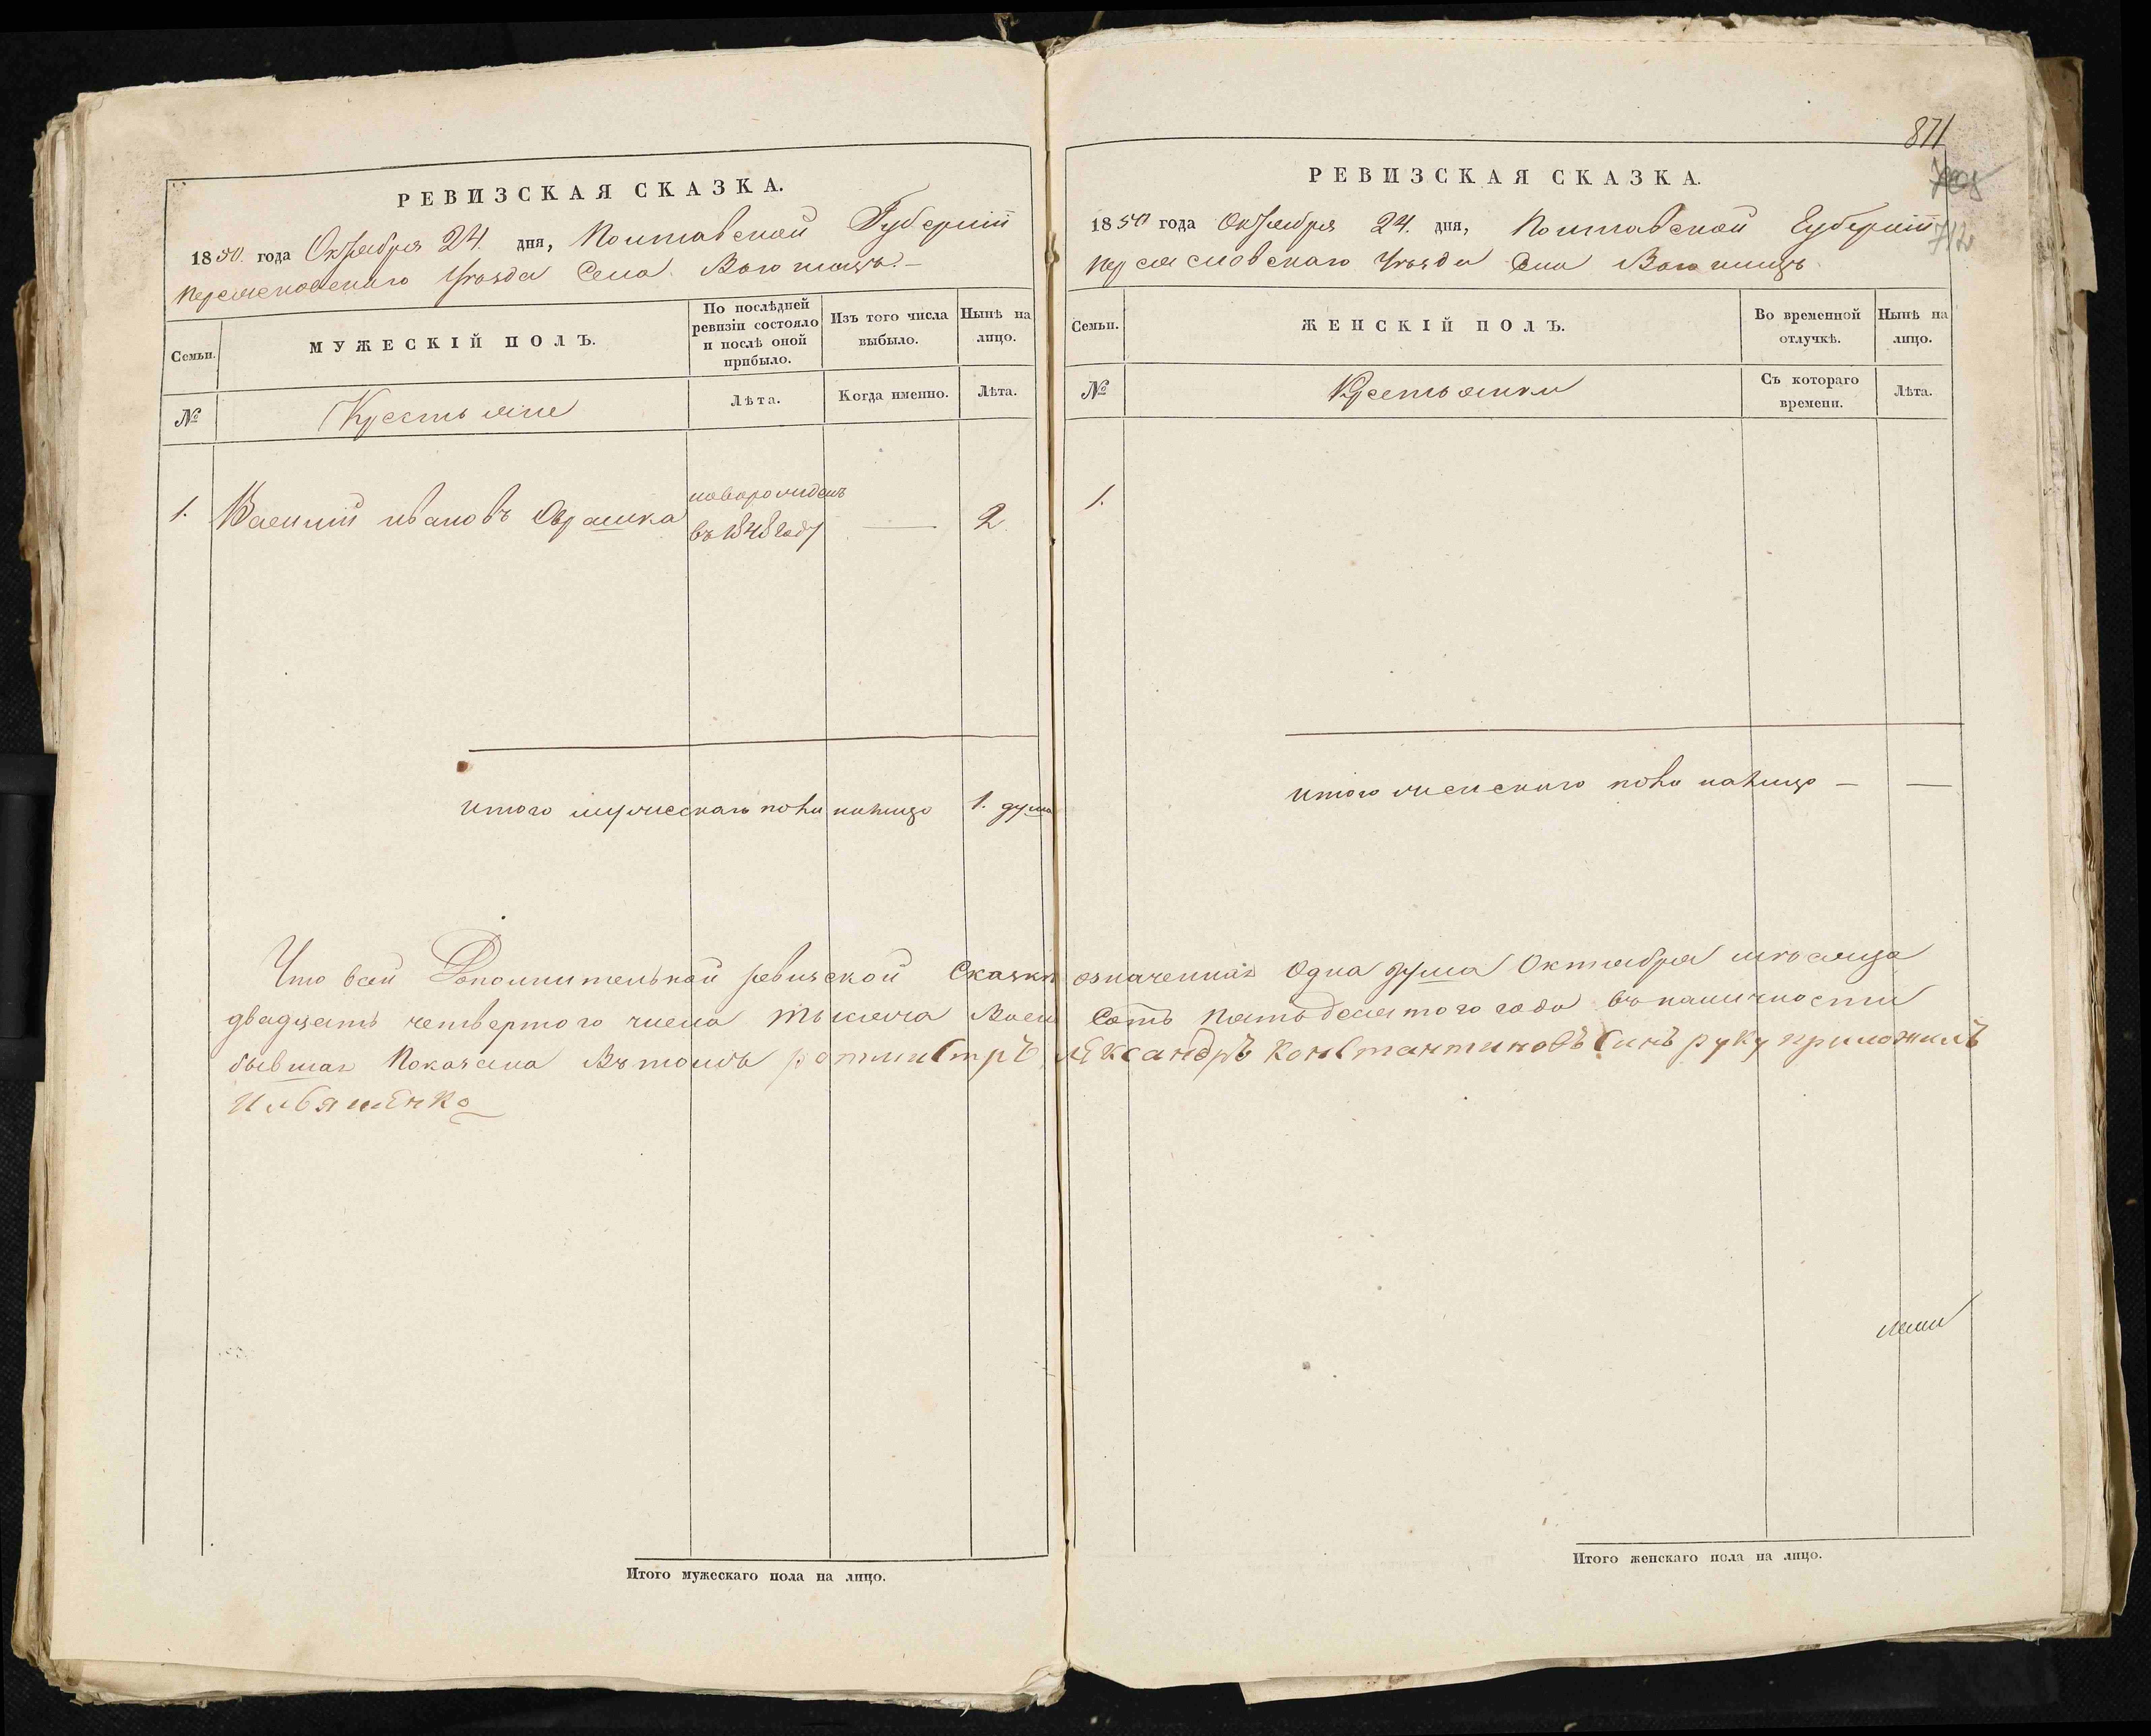 РЕВИЗСКАЯ СКАЗКА.
1850. года Октября 24. дня, Полтавской Губерніи
Переясловскаго Уѣзда Села
Семьи.
МУЖЕСКІЙ ПОЛЪ.
По послѣдней
ревизіи состояло
и послѣ оной
прибыло.
Изъ того числа
выбыло.
Нынѣ на
лицо.
№
Крестьяне
Лѣта.
Когда именно.
Лѣта.
1. Василій Ивановъ
новорожденъ
въ 1848 году
2
Итого мужескаго пола налицо 1. душа
Что въ сей Дополнительной ревизской Сказки
двадцать четвертого числа тысяча Восем
бывшая Показана Въ томъ ротмистръ
Ильяшенко
Итого мужескаго пола на лицо.
871
712
РЕВИЗСКАЯ СКАЗКА.
1850 года Октября 24. дня, Полтавской Губерніи
Переясловскаго Уѣзда Села
Семьи.
ЖЕНСКІЙ ПОЛЪ.
Во временной
отлучкѣ.
Нынѣ на
лицо.
№
Крестьянки
Съ котораго
времени.
Лѣта.
1.
Итого женскаго пола налицо — —
означенная Одна душа Октября мѣсяца
Сотъ Пятьдесятого года въ наличности
Александръ Константиновъ Синъ руку приложилъ
Итого женскаго пола на лицо.